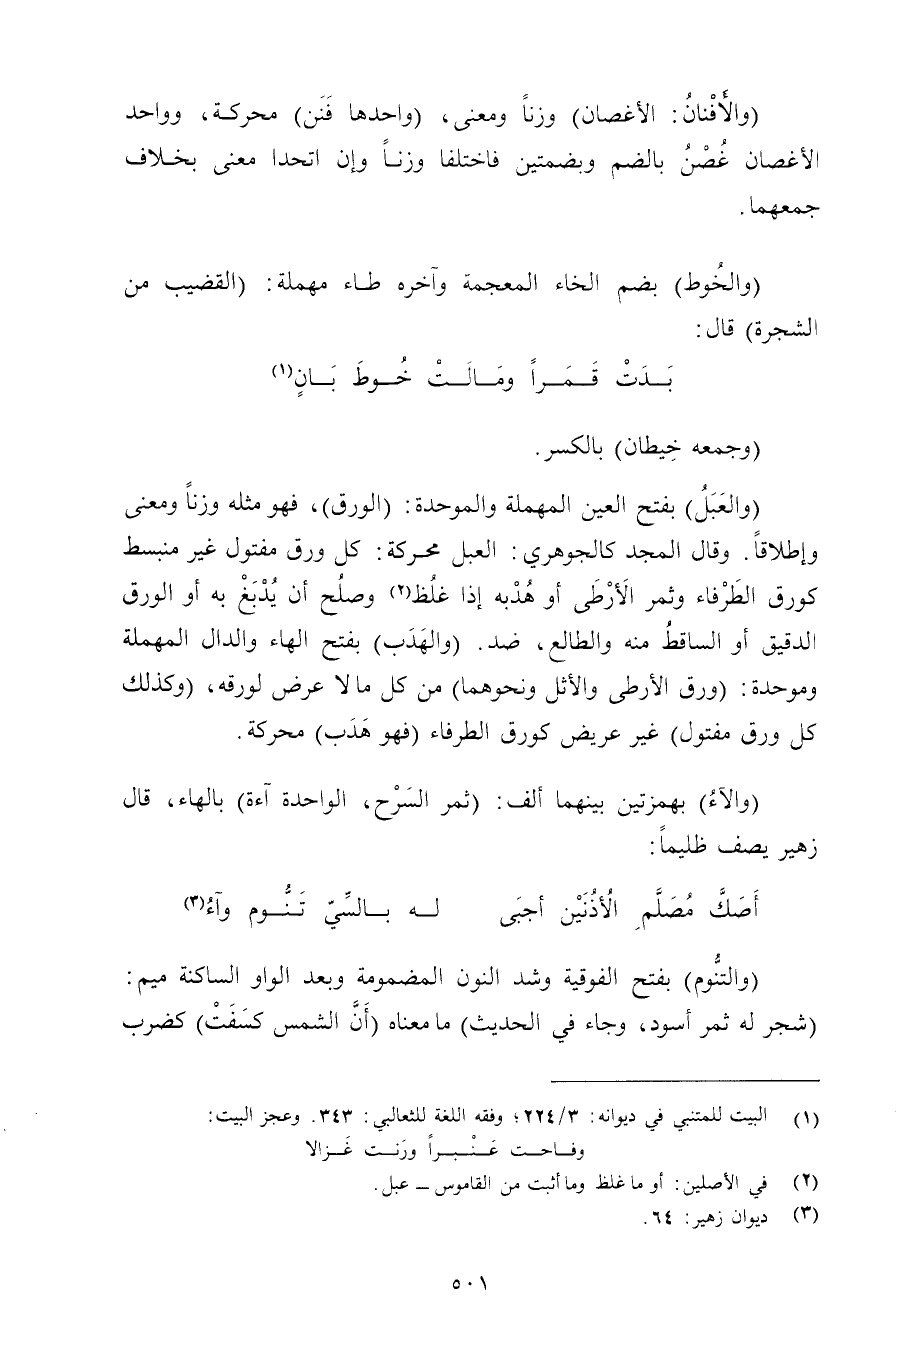 (والأَفْنانُ: الأغصان) وزناً ومعنى، (واحدها فَنَن) محركة، وواحد
الأغصان غُصْنُ بالضم وبضمتين فاختلفا وزنـاً وإن اتحدا معنى بخلاف
جمعهما.
(والخُوط) بضم الخاء المعجمة وآخره طاء مهملة: (القضيب من
الشجرة) قال:
بَدَتْ قَمَراً ومَالَتْ خُوطَ بَانٍ(١)
(وجمعه خِيطان) بالكسر.
(والعَبَلُ) بفتح العين المهملة والموحدة: (الورق)، فهو مثله وزناً ومعنى
وإطلاقاً. وقال المجد كالجوهري: العبل محركة: كل ورق مفتول غير منبسط
كورق الطَرْفاء وثمر الأَرْطَى أو هُدْبه إذا غلُظ(٢) وصلُح أن يُدْبَغْ به أو الورق
الدقيق أو الساقطُ منه والطالع، ضد. (والهَدَب) بفتح الهاء والدال المهملة
وموحدة: (ورق الأرطى والأثل ونحوهما) من كل ما لا عرض لورقه، (وكذلك
كل ورق مفتول) غير عريض كورق الطرفاء (فهو هَدَب) محركة.
(والآءُ) بهمزتين بينهما ألف: (ثمر السَرْح، الواحدة آءة) بالهاء، قال
زهير يصف ظليماً:
أصَكَّ مُصَلَّمِ الأُذُنَيْن أجبَى له بالسِّيّ تَنُّوم وآءُ(٣)
(والتنُّوم) بفتح الفوقية وشد النون المضمومة وبعد الواو الساكنة ميم:
(شجر له ثمر أسود، وجاء في الحديث) ما معناه (أَنَّ الشمس كسَفَتْ) كضرب
(١) البيت للمتنبي في ديوانه: ٢٢٤/٣؛ وفقه اللغة للثعالبي: ٣٤٣. وعجز البيت:
وفـاحـت عَنْـبـراً ورَنـت غَـزالا
(٢) في الأصلين: أو ما غلظ وما أثبت من القاموس ــ عبل.
(٣) ديوان زهير: ٦٤.
٥٠١